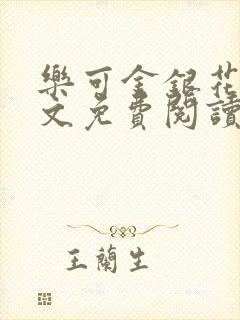 樂可金銀花
文免費閱讀
王蘭生